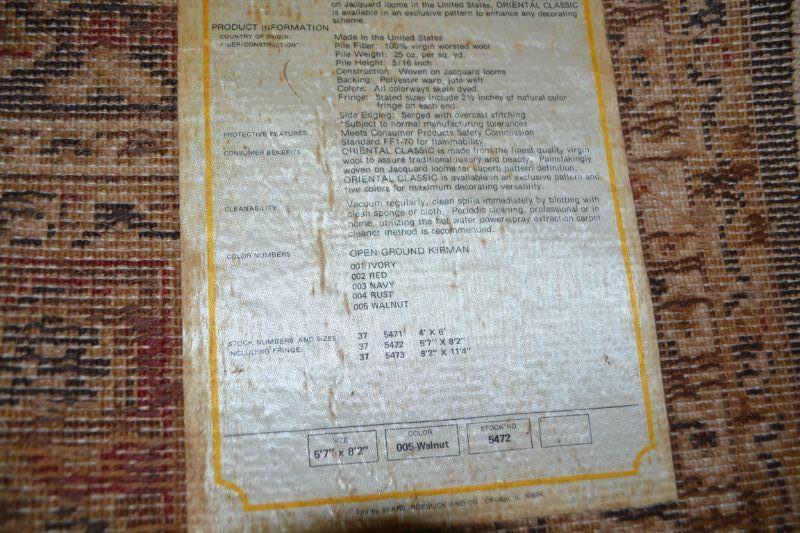 on Jacquard looms in the United States, ORIENTAL CLASSIC
is available in an exclusive pattern to enhance any decorating
scheme.
PRODUCT INFORMATION
COUNTRY OF ORIGIN: Made in the United States
FIBER/CONSTRUCTION* Pile Fiber: 100% virgin worsted wool
Pile Weight: 25 oz. per sq. yd.
Pile Height: 5/16 inch
Construction: Woven on Jacquard looms
Backing: Polyester warp, jute weft
Colors: All colorways skein dyed.
Fringe: Stated sizes include 2½ inches of natural color
fringe on each end.
Side Edging: Serged with overcast stitching
*Subject to normal manufacturing tolerances
PROTECTIVE FEATURES Meets Consumer Products Safety Commission
Standard FF1-70 for flammability.
CONSUMER BENEFITS ORIENTAL CLASSIC is made from the finest quality virgin
wool to assure traditional luxury and beauty. Painstakingly
woven on Jacquard looms for superb pattern definition.
ORIENTAL CLASSIC is available in an exclusive pattern and
five colors for maximum decorating versatility.
CLEANABILITY Vacuum regularly, clean spills immediately by blotting with
clean sponge or cloth. Periodic cleaning, professional or in
home, utilizing the hot water powerspray extraction carpet
cleaner method is recommended.
COLOR NUMBERS OPEN GROUND KIRMAN
001 IVORY
002 RED
003 NAVY
004 RUST
005 WALNUT
STOCK NUMBERS AND SIZES 37 5471 4' X 6'
INCLUDING FRINGE: 37 5472 5'7" X 8'2"
37 5473 8'2" X 11'4"
SIZE COLOR STOCK NO
5'7" x 8'2" 005-Walnut 5472
Sold by SEARS, ROEBUCK AND CO. Chicago, IL 60684